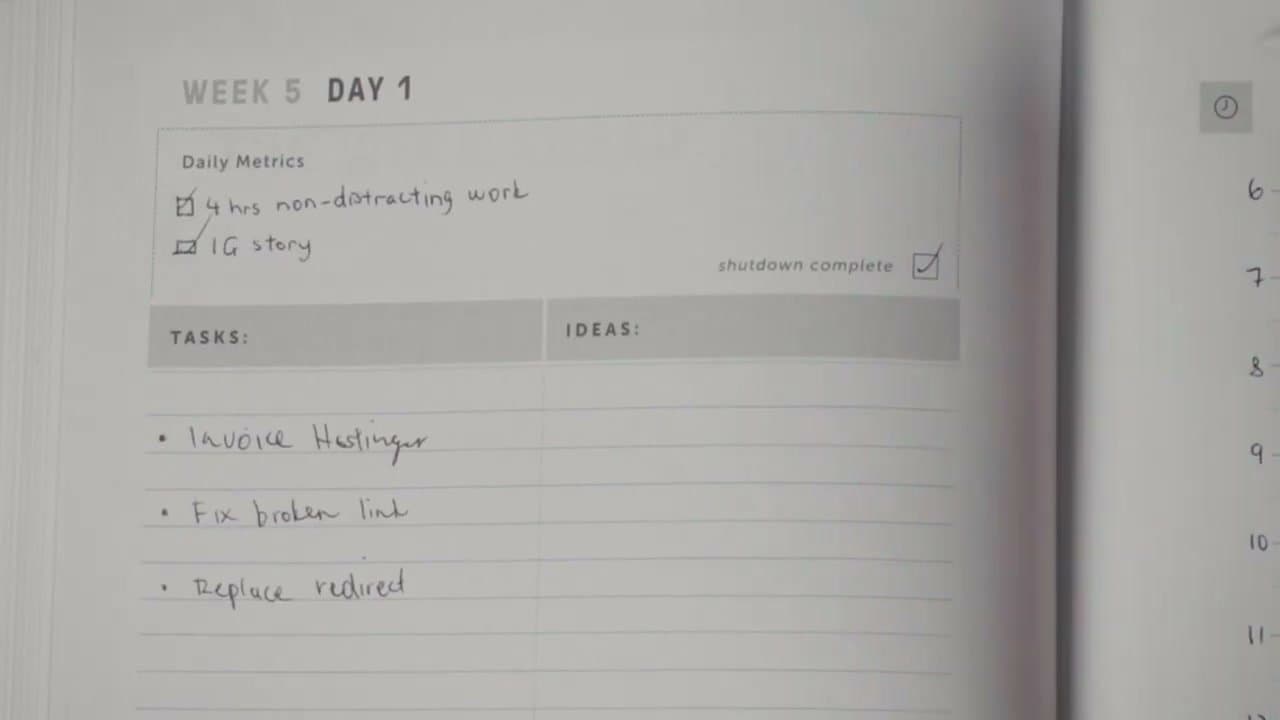 WEEK 5 DAY 1
Daily Metrics
4 hrs non-distracting work
IG story
shutdown complete
TASKS:
IDEAS:
• Invoice Hostinger
• Fix broken link
• Replace redirect
6
7
8
9
10
11